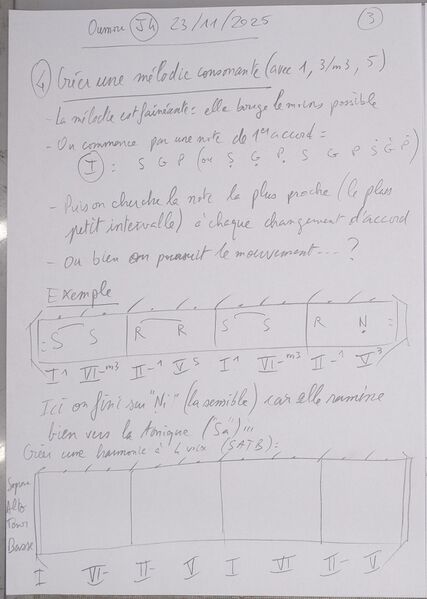 Oumou J4 23/11/2025
3
4 Créer une mélodie consonante (avec 1, 3/m3, 5)
- La mélodie est fainéante : elle bouge le moins possible
- On commence par une note de 1er accord =
I : S G P (ou Ṣ G̣ P̣ S G P Ṡ Ġ Ṗ)
- Puis on cherche la note la plus proche (le plus
petit intervalle) à chaque changement d'accord
- Ou bien on poursuit le mouvement.... ?
Exemple
S S R R S S R Ṇ
I1 VI-m3 II-1 V5 I1 VI-m3 II-1 V3
Ici on fini sur "Ni" (la sensible) car elle ramène
bien vers la tonique ("Sa") !!!
Créer une harmonie à 4 voix (SATB) :
Soprano
Alto
Ténor
Basse
I VI- II- V I VI II- V